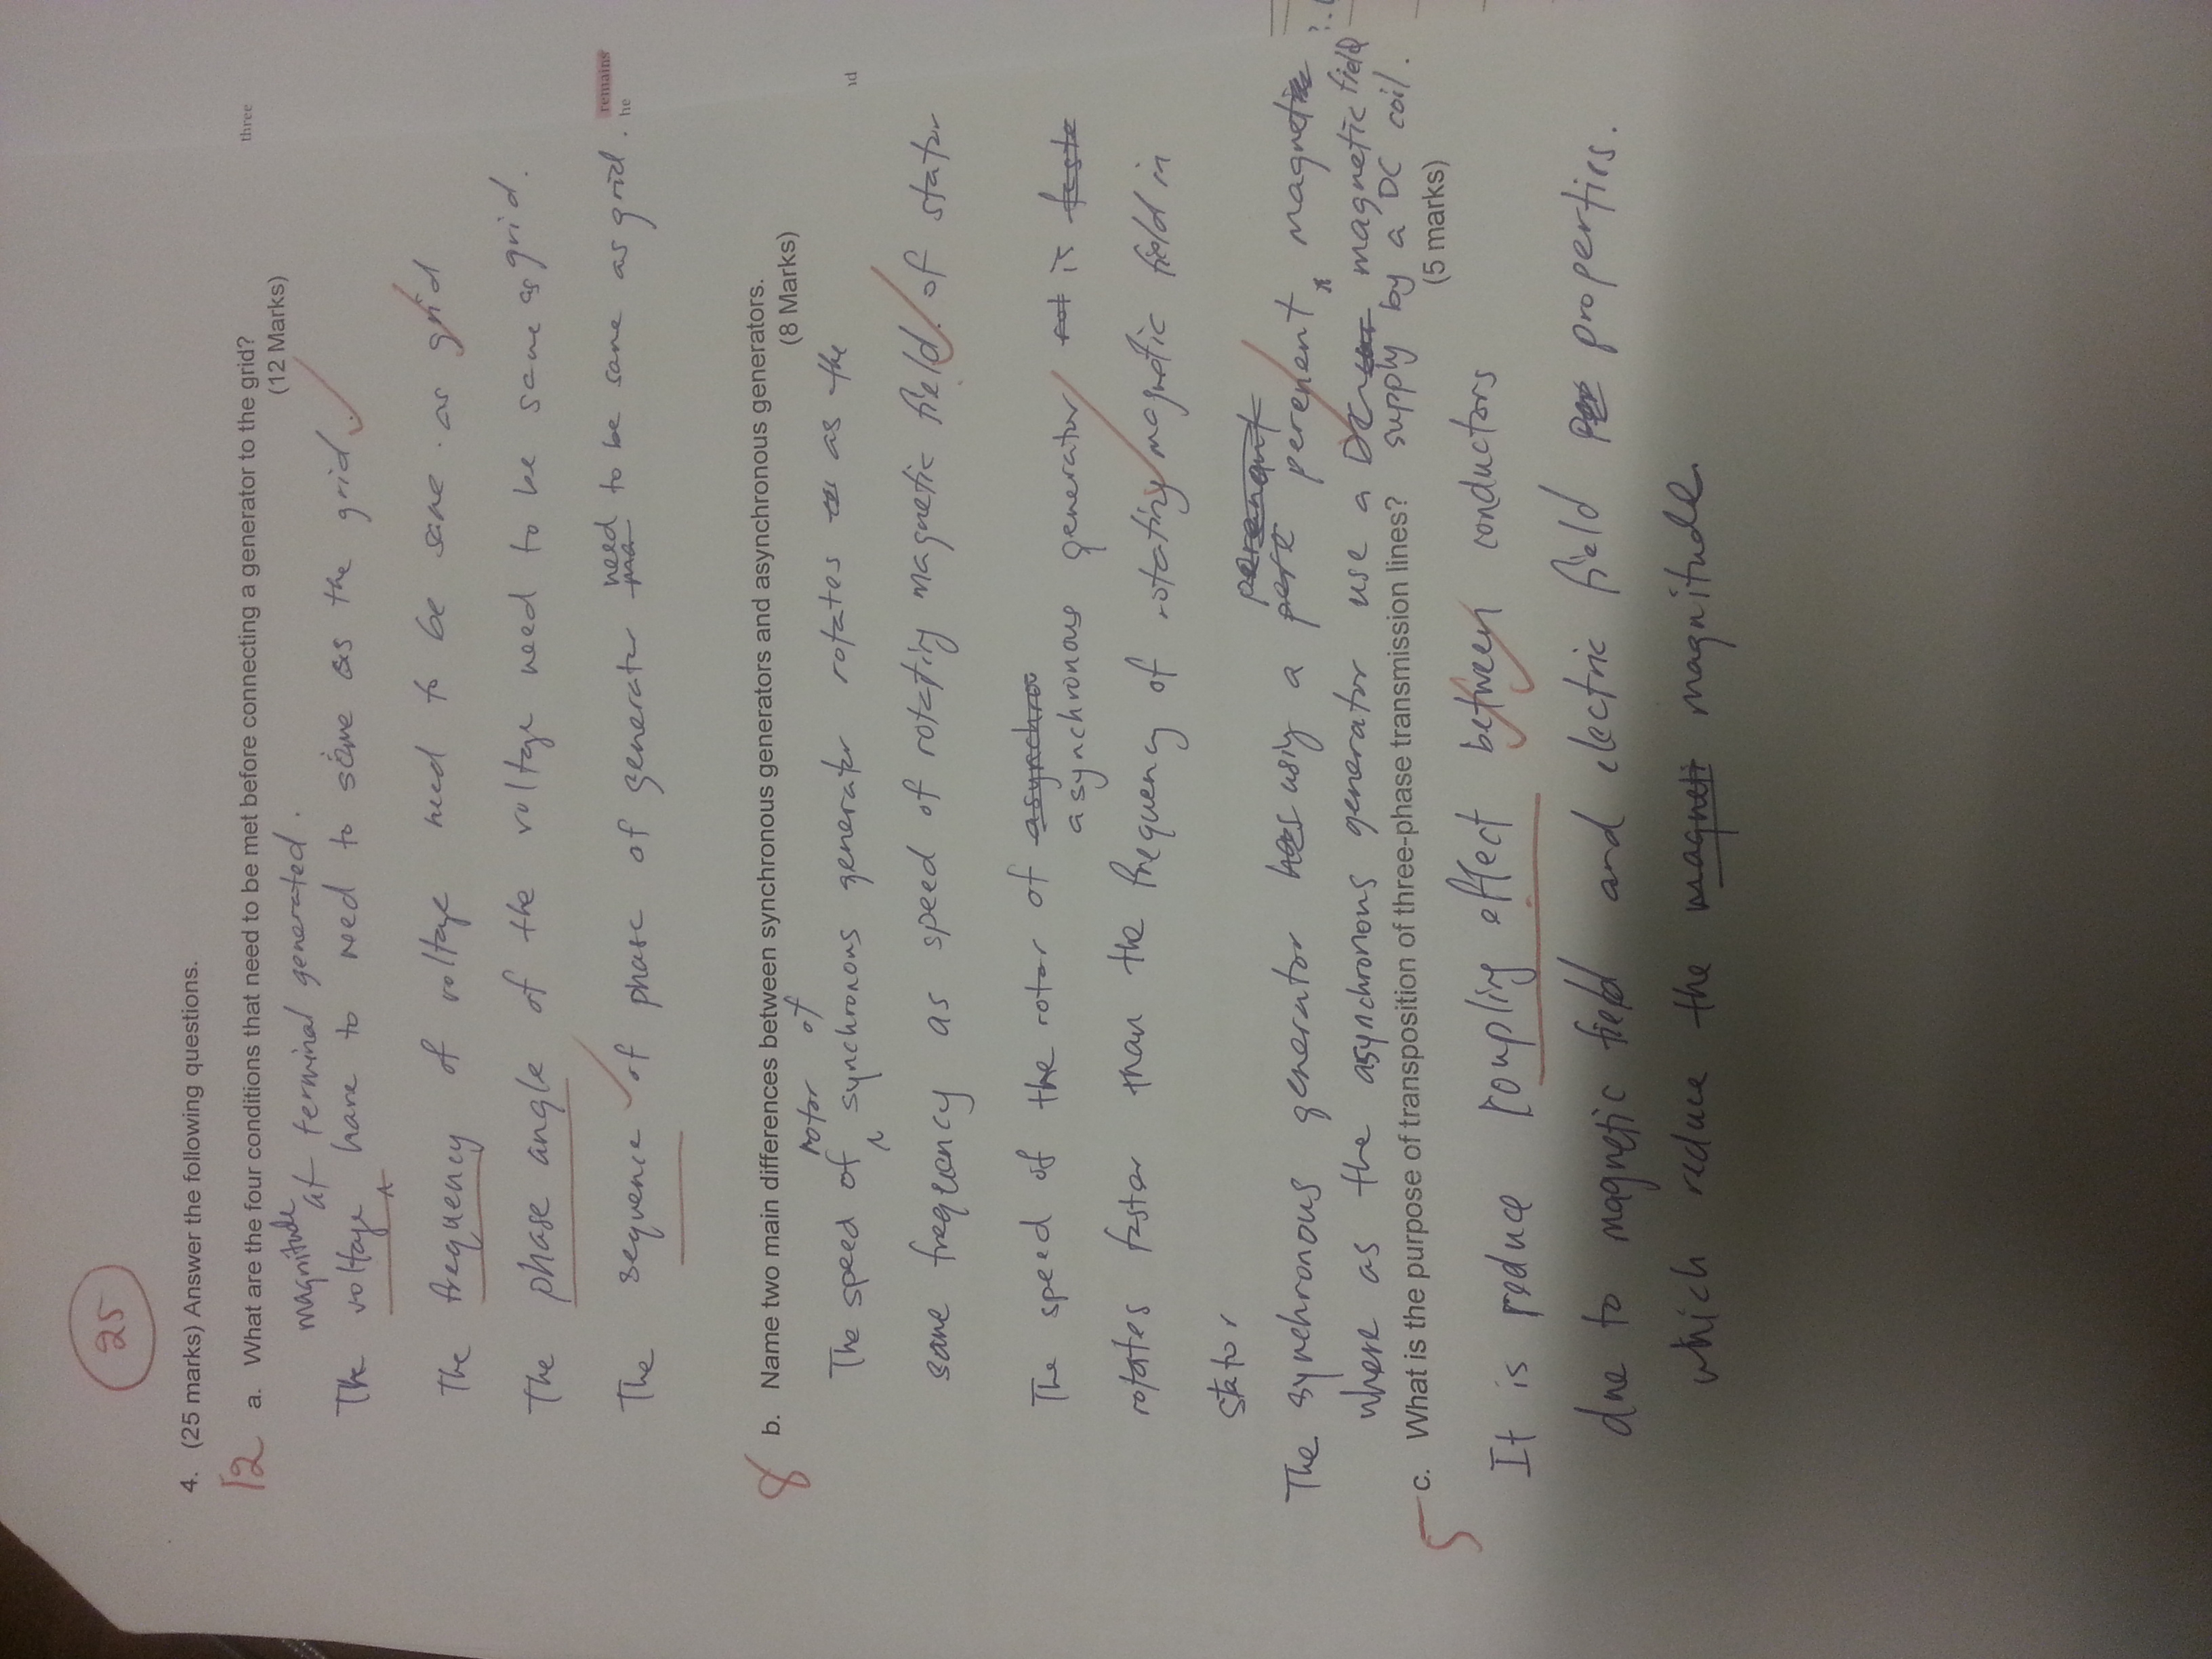 25
4. (25 marks) Answer the following questions.
12 a. What are the four conditions that need to be met before connecting a generator to the grid?
(12 Marks)
magnitude at terminal generated.
The voltage have to need to same as the grid.
The frequency of voltage need to be same. as grid
The phase angle of the voltage need to be same as grid.
The sequence of phase of generator need to be same as grid.
8 b. Name two main differences between synchronous generators and asynchronous generators.
(8 Marks)
rotor of
The speed of synchronous generator rotates as the
same frequency as speed of rotating magnetic field. of stator
The speed of the rotor of asynchronous generator is
rotates faster than the frequency of rotating magnetic field in
stator
The synchronous generator using a perenent magnetic
where as the asynchronous generator use a DC magnetic field
supply by a DC coil.
5 c. What is the purpose of transposition of three-phase transmission lines?
(5 marks)
It is reduce coupling effect between conductors
due to magnetic field and electric field properties.
which reduce the magnitude
three
remains
he